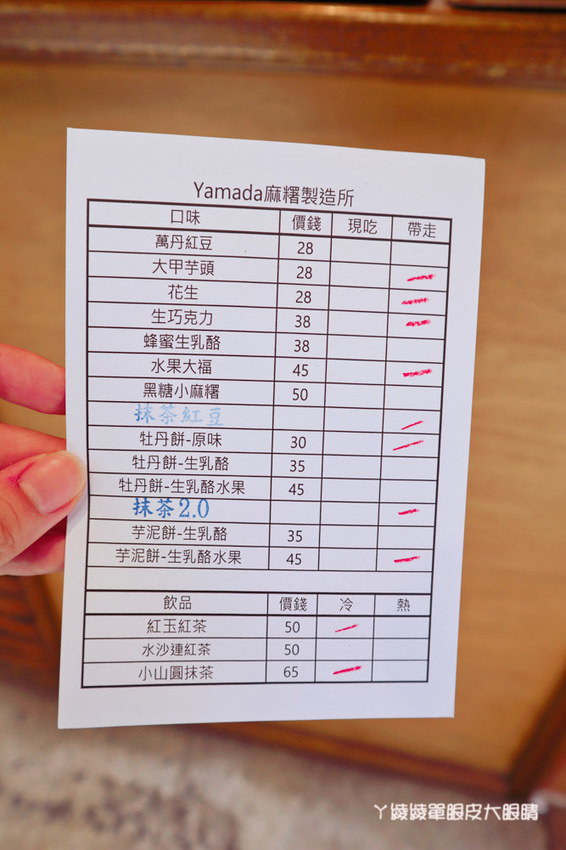 Yamada麻糬製造所
口味 價錢 現吃 帶走
萬丹紅豆 28
大甲芋頭 28
花生 28
生巧克力 38
蜂蜜生乳酪 38
水果大福 45
黑糖小麻糬 50
抹茶紅豆
牡丹餅-原味 30
牡丹餅-生乳酪 35
牡丹餅-生乳酪水果 45
抹茶2.0
芋泥餅-生乳酪 35
芋泥餅-生乳酪水果 45
飲品 價錢 冷 熱
紅玉紅茶 50
水沙連紅茶 50
小山圓抹茶 65
ㄚ綾綾單眼皮大眼睛